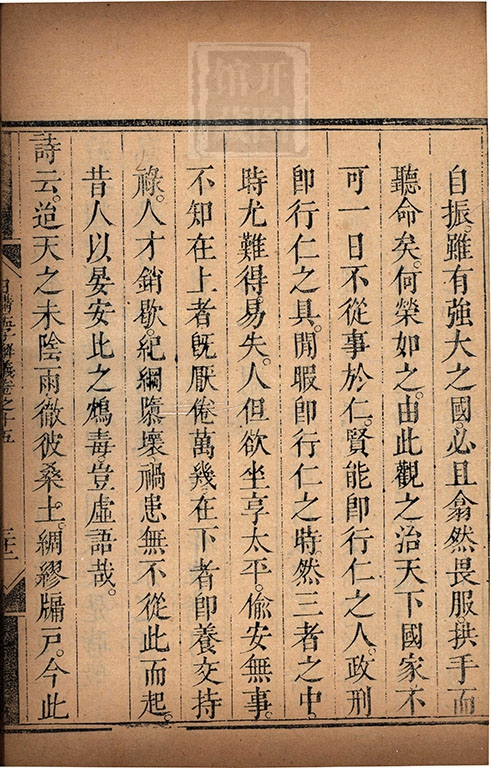 自振。雖有強大之國。必且翕然畏服。拱手而
聽命矣。何榮如之。由此觀之治天下國家不
可一日不從事於仁。賢能卽行仁之人。政刑
卽行仁之具。閒暇卽行仁之時。然三者之中。
時尤難得。易失。人但欲坐享太平。偷安無事。
不知在上者旣厭倦萬幾在下者卽養交持
祿。人才銷歇。紀綱隳壞禍患無不從此而起。
昔人以晏安比之鴆毒。豈虛語哉。
詩云。迨天之未陰雨。徹彼桑土。綢繆牖戶。今此
日講四書解義卷之十五